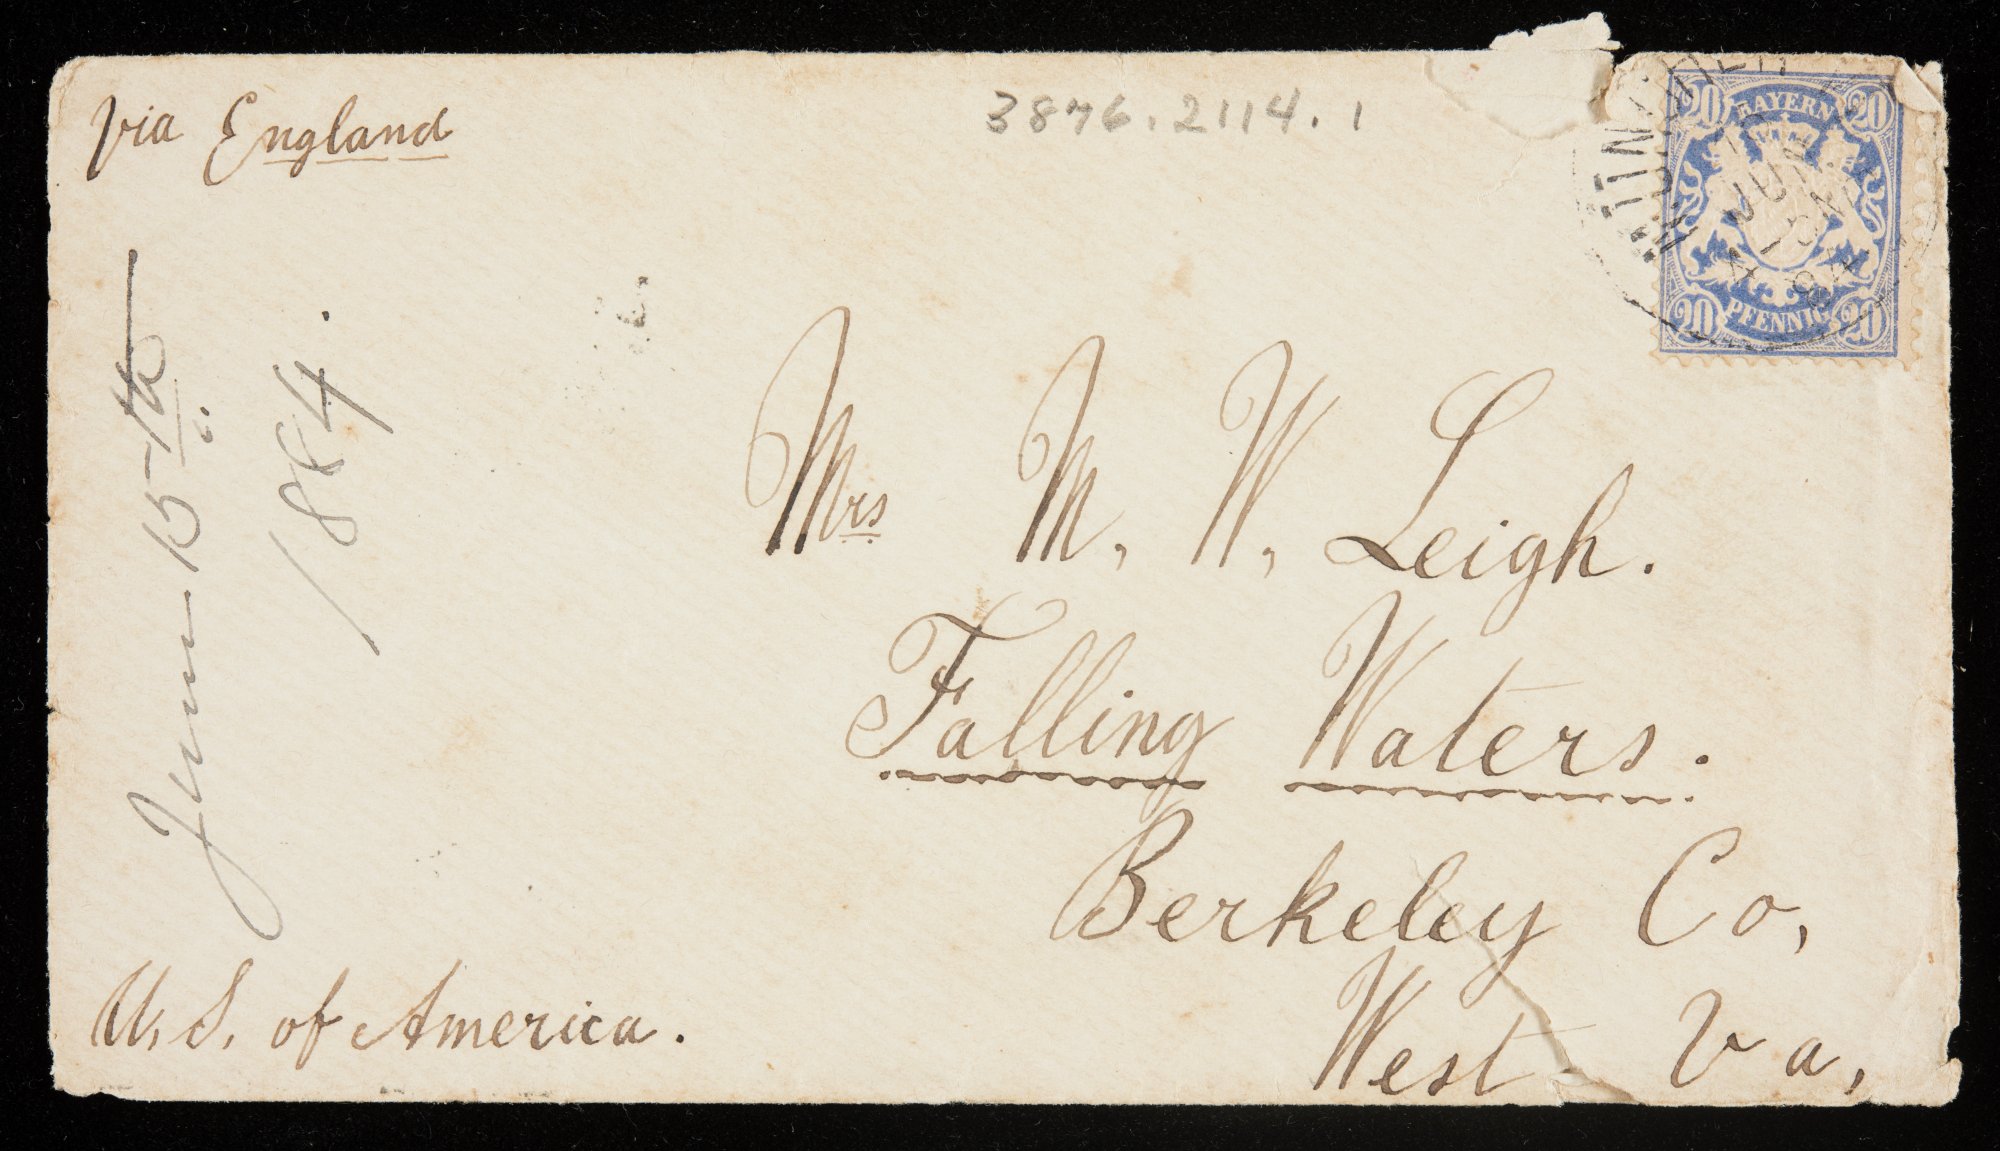 Via England
3876.2114.1
20 BAYERN 20
MÜNCHEN
JUN
84
20 PFENNIG 20
June 15th
1884.
Mrs M. W. Leigh.
Falling Waters.
Berkeley Co,
West. Va,
U. S. of America.